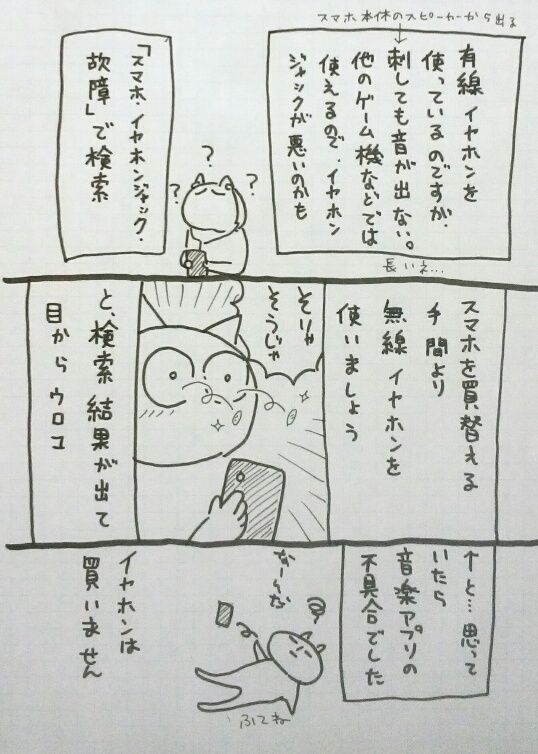 スマホ本体のスピーカーから出る
有線イヤホンを
使っているのですが、
刺しても音が出ない。
他のゲーム機などでは
使えるので、イヤホン
ジャックが悪いのかも
長いネ…
「スマホ・イヤホンジャック・
故障」で検索
？
？
？
スマホを買替える
手間より
無線イヤホンを
使いましょう
そりゃ
そうじゃ
と、検索結果が出て
目からウロコ
↑と…思って
いたら
音楽アプリの
不具合でした
なーんだ
ふてね
イヤホンは
買いません